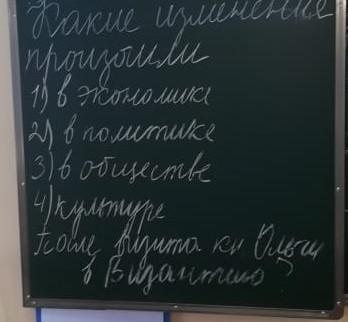 Какие изменения
произошли
1) в экономике
2) в политике
3) в обществе
4) культуре
после визита кн Ольги
в Византию